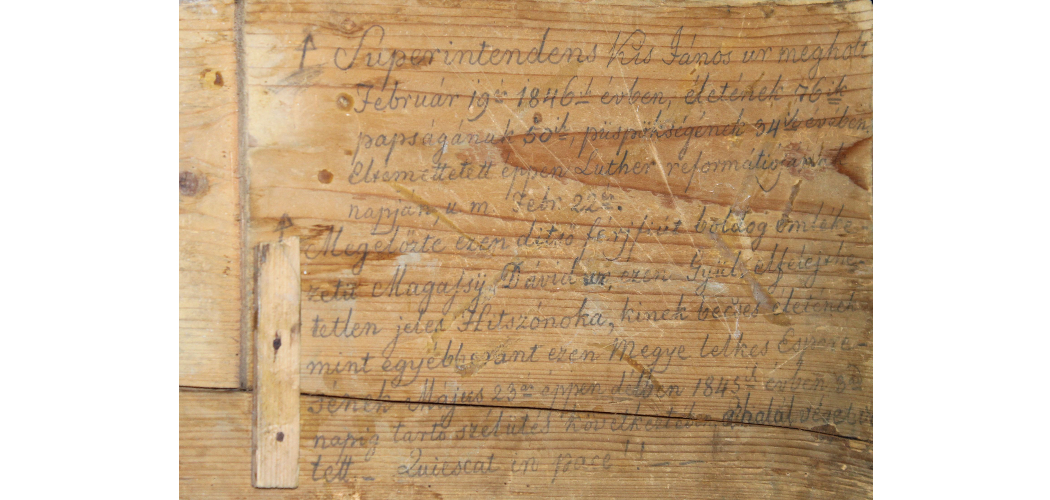 Superintendens Kis János ur megholt
Február 19én 1846ik évben, életének 76ik
papságának 50ik, püspökségének 34ik évében.
Eltemettetett éppen Luther reformátiojának
napján, u. m. Febr. 22én.
Megelőzte ezen ditső férjfiút boldog emléke-
zetü Magassy Dávid ur, ezen Gyül. elfelejthe-
tetlen jeles Hitszónoka, kinek becses életének
mint egyébberánt ezen Megye lelkes Espere-
sének Május 23án éppen délben 1845ik évben 3
napig tartó szélütés következtében, a halál véget
tett. _ Quiescat in pace!!